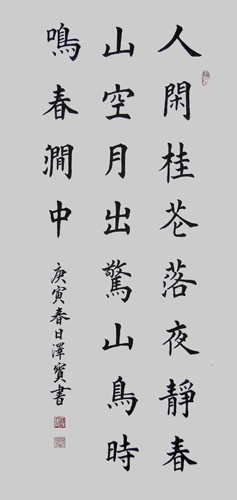 人閑桂花落夜靜春
山空月出驚山鳥時
鳴春澗中
庚寅春日澤寶書